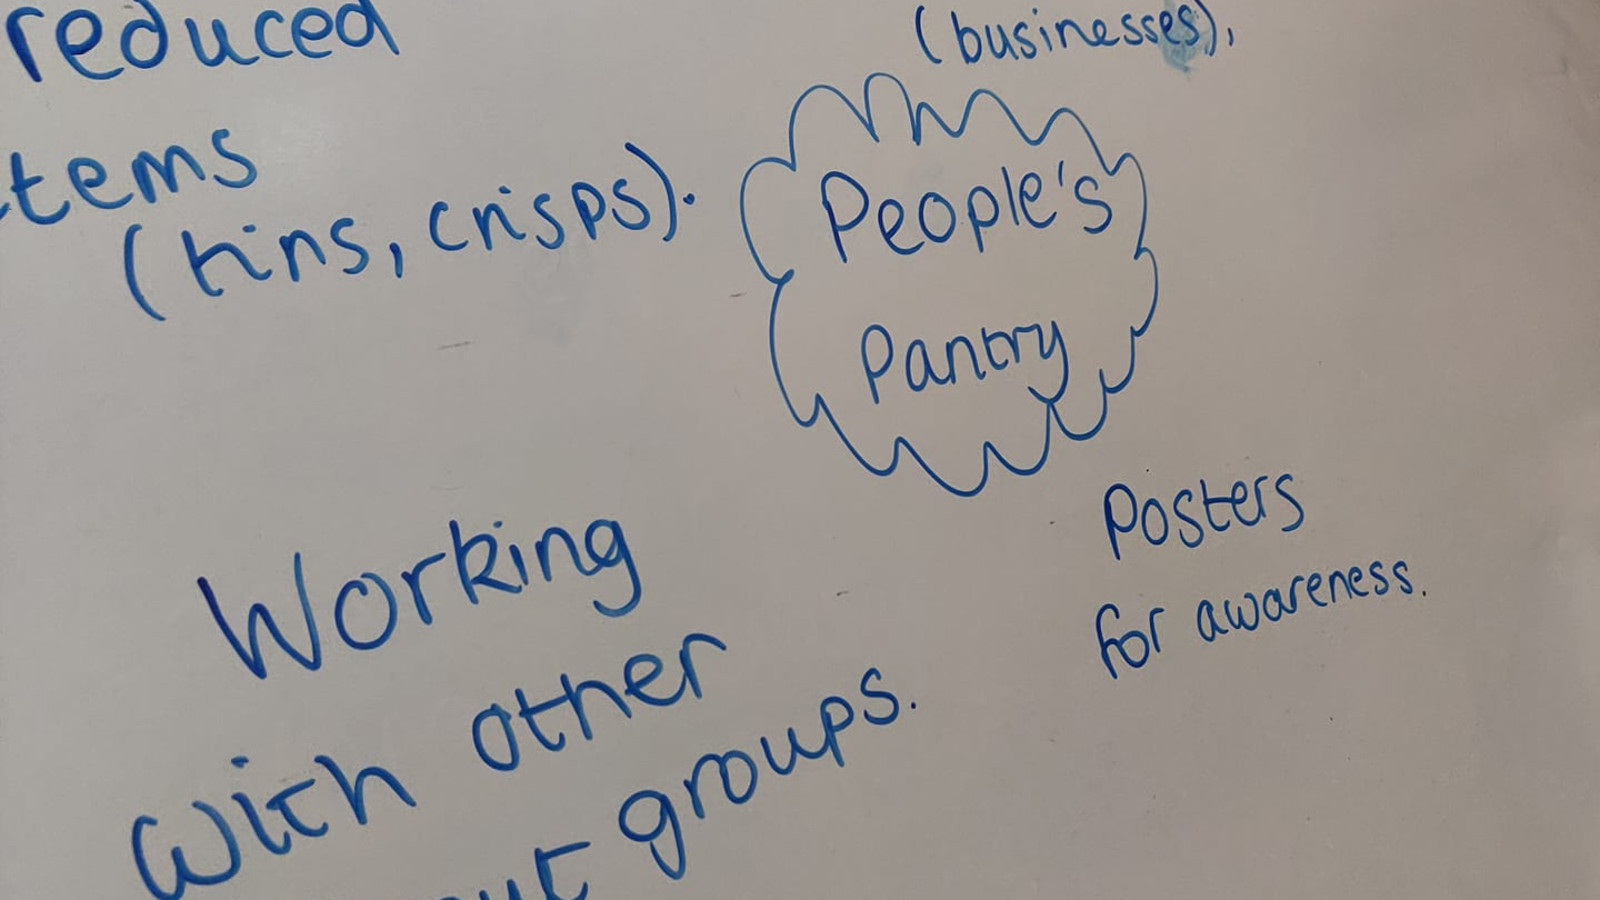 reduced
tems
(tins, crisps).
(businesses),
People's
Pantry
Posters
for awareness.
Working
with other
groups.